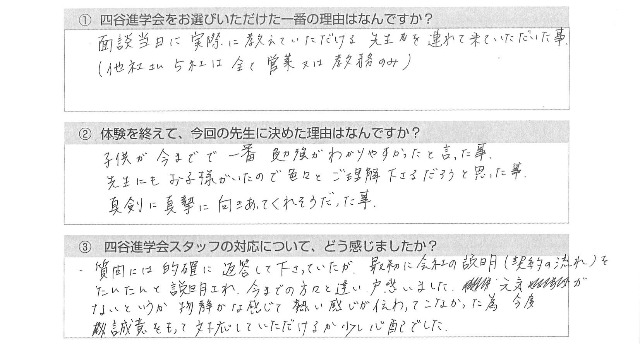 ① 四谷進学会をお選びいただけた一番の理由はなんですか?
面談当日に実際に教えていただける先生方を連れて来ていただいた事。
(他社さん5社は全て営業又は教務のみ)
② 体験を終えて、今回の先生に決めた理由はなんですか?
子供が今までで一番勉強がわかりやすかったと言った事。
先生にもお子様がいたので色々とご理解下さるだろうと思った事。
真剣に真摯に向きあってくれそうだった事。
③ 四谷進学会スタッフの対応について、どう感じましたか?
・質問には的確に返答して下さっていたが、最初に会社の説明(契約の流れ)を
たんたんと説明され、今までの方々と違い戸惑いました。元気が
ないというか物静かな感じで熱い感じが伝わってこなかった為 今後
誠意をもって対応していただけるか少し心配でした。